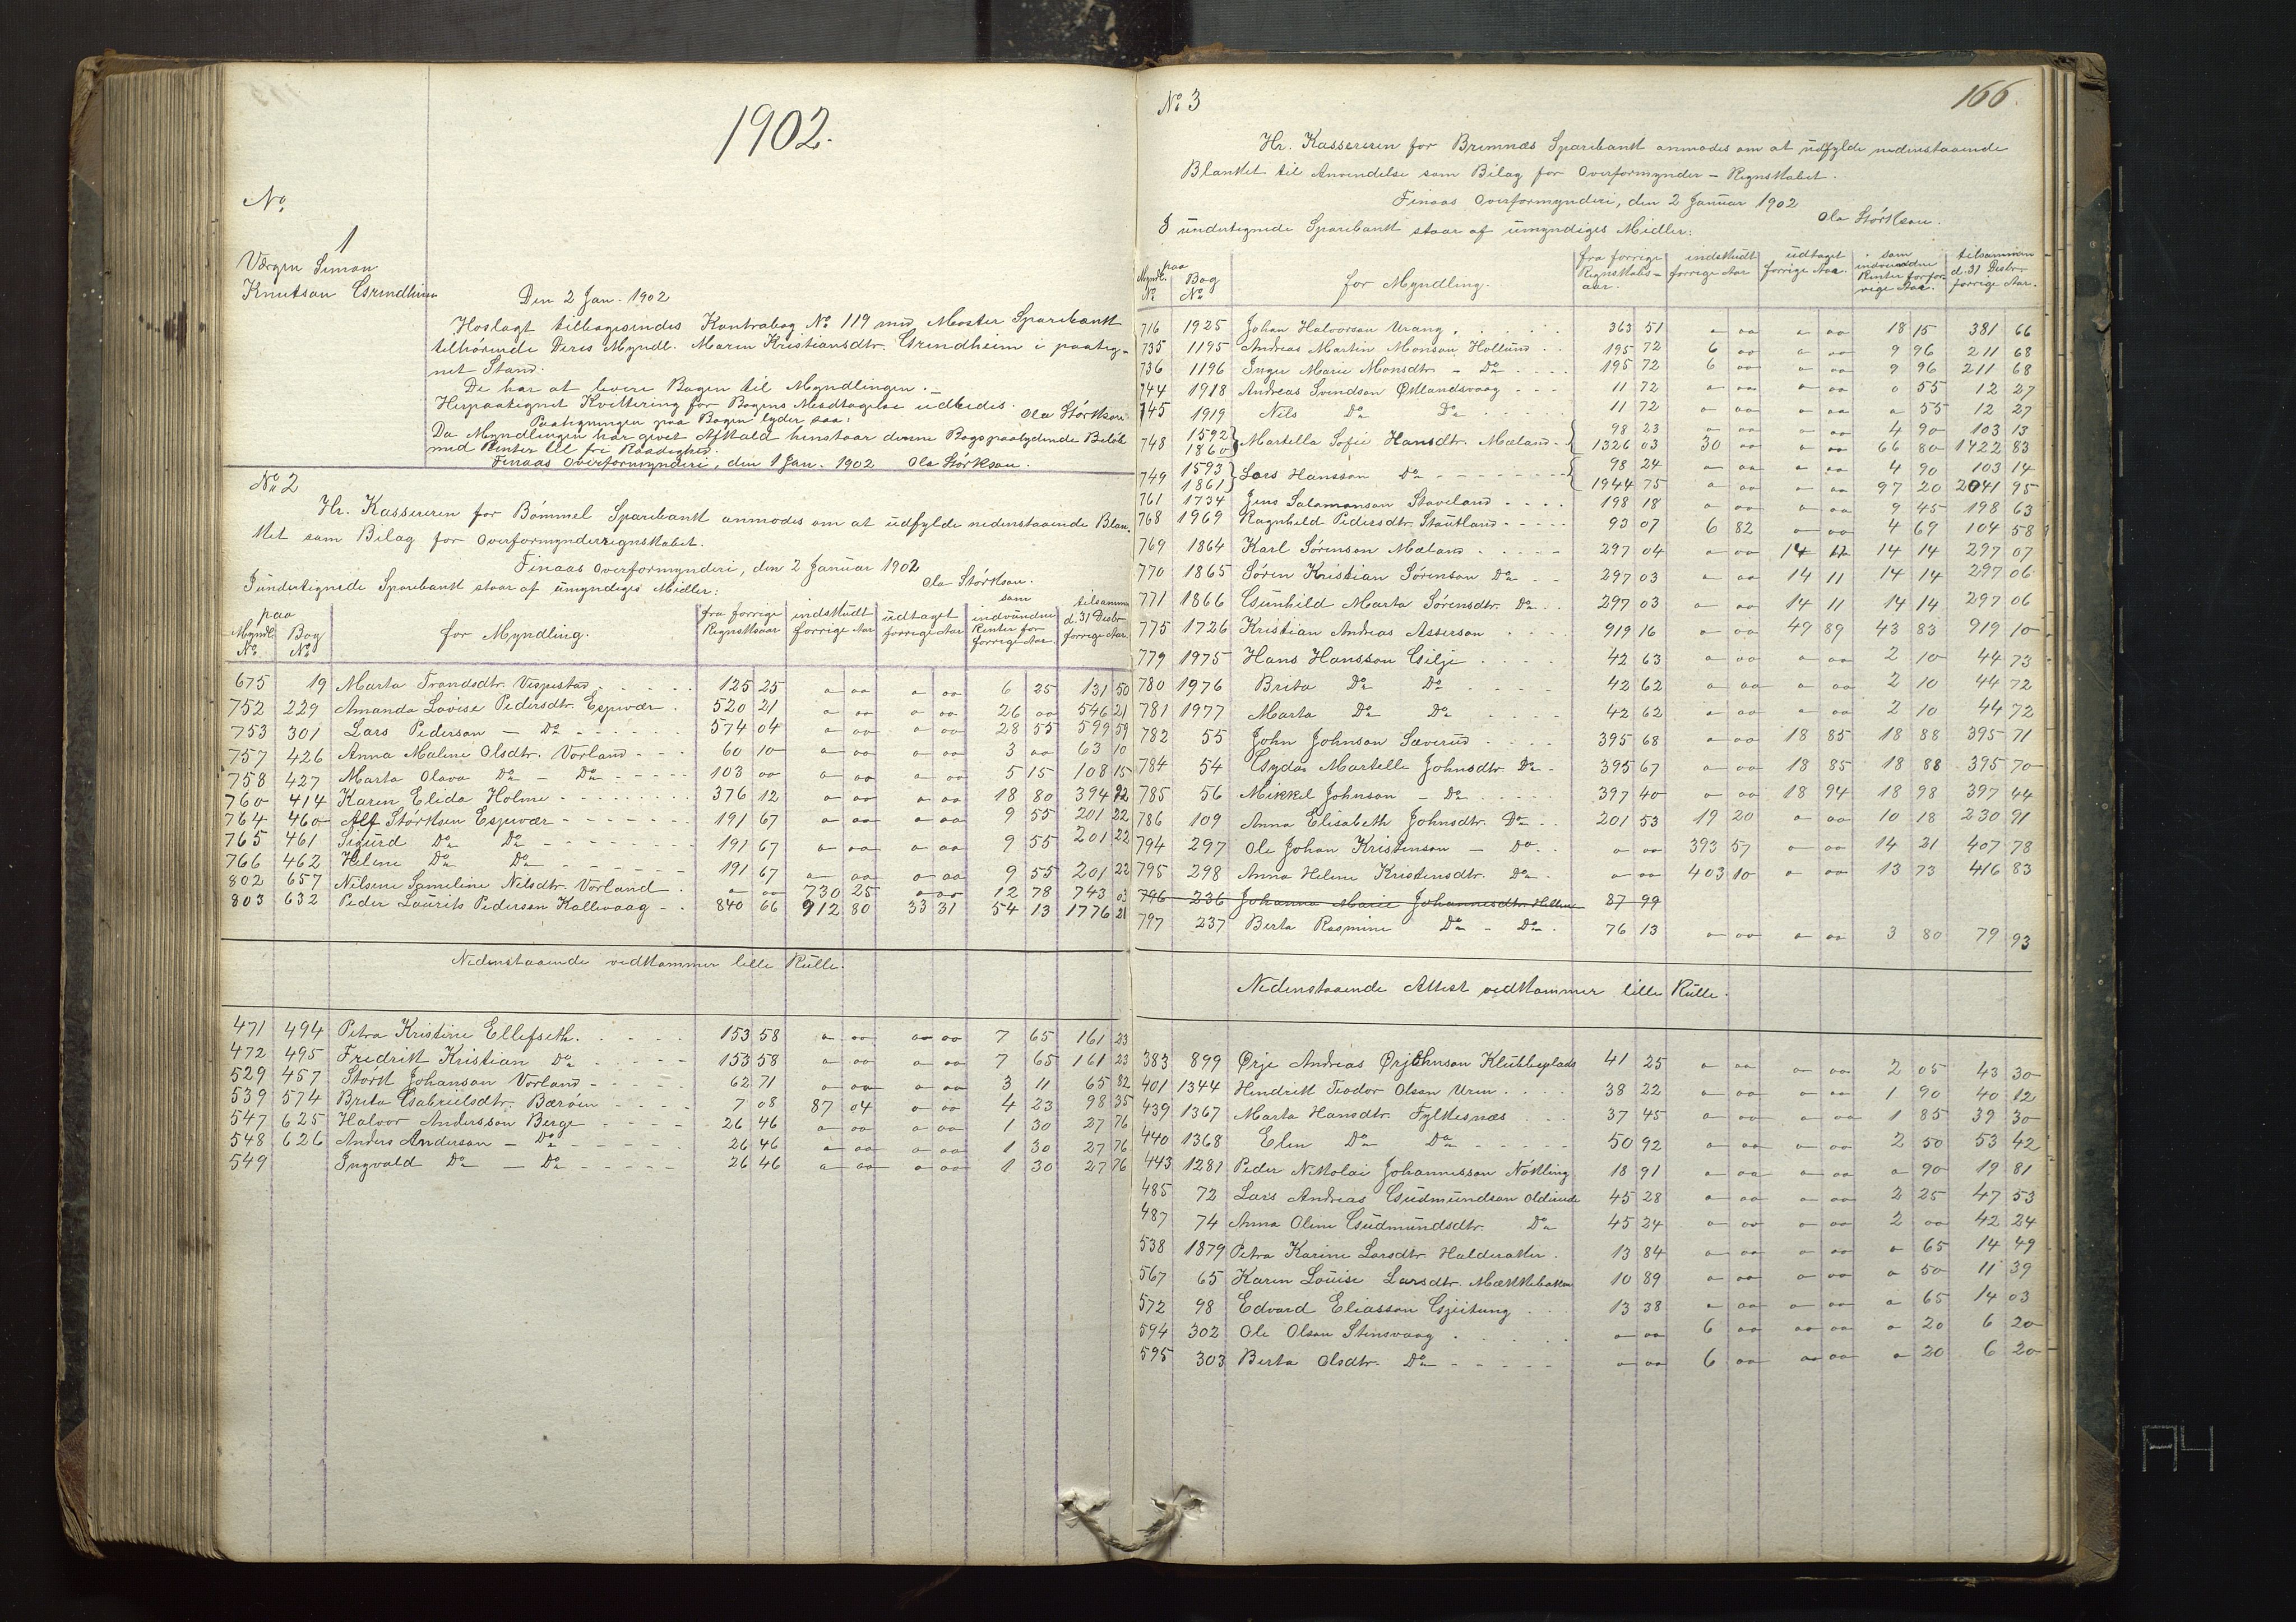 1902.
No.
1
Værgen Simon
Knutson Grindheim
Den 2 Jan. 1902
Hoslagt tilbagesendes Kontrabog No 119 med Moster Sparebank
tilhørende Deres Myndl. Maren Kristiansdtr. Grindheim i paateg-
net Stand.
De har at levere Bogen til Myndlingen.
Herpaategnet Kvittering for Bogens Modtagelse udbedes.
Ola Størkson
Paategningen paa Bogen lyder saa:
Da Myndlingen har givet Afkald henstaar denne Bogs paalydende Beløb
med Renter til fri Raadighed.
Finaas Overformynderi, den 1 Jan. 1902 Ola Størkson.
No 2
Hr. Kassereren for Bømmel Sparebank anmodes om at udfylde nedenstaaende Blan-
ket som Bilag for Overformynderregnskabet.
Finaas Overformynderi, den 2 Januar 1902
Ola Størkson.
I undertegnede Sparebank staar af umyndiges Midler:
paa Myndl. No | Bog No | for Myndling. | fra forrige Regnskaar | indskudt forrige Aar | udtaget forrige Aar | som indvundne Renter for forrige Aar. | tilsammen d. 31 Desbr. forrige Aar.
675 19 Marta Trondsdtr. Vispestad 125 25 " "" " "" 6 25 131 50
752 229 Amanda Lovise Pedersdtr. Espevær 520 21 " "" " "" 26 "" 546 21
753 301 Lars Pederson - Do 574 04 " "" " "" 28 55 599 59
757 426 Anna Maline Olsdtr. Vorland 60 10 " "" " "" 3 "" 63 10
758 427 Marta Olava Do - Do 103 "" " "" " "" 5 15 108 15
760 414 Karen Elida Holme 376 12 " "" " "" 18 80 394 92
764 460 Alf Størksen Espevær 191 67 " "" " "" 9 55 201 22
765 461 Sigurd Do Do 191 67 " "" " "" 9 55 201 22
766 462 Helene Do Do 191 67 " "" " "" 9 55 201 22
802 657 Nilsine Sameline Nilsdtr. Vorland " "" 730 25 " "" 12 78 743 03
803 632 Peder Laurits Pederson Kallevaag 840 66 912 80 33 31 54 13 1776 21
Nedenstaaende vedkommer lille Rulle.
471 494 Petra Kristine Ellefseth. 153 58 " "" "" "" 7 65 161 23
472 495 Fredrik Kristian Do 153 58 " "" " "" 7 65 161 23
529 457 Størk Johanson Vorland 62 71 " "" " "" 3 11 65 82
539 574 Brita Gabrielsdtr. Bærøen 7 08 87 04 " "" 4 23 98 35
547 625 Halvor Andersson Berge 26 46 " "" " "" 1 30 27 76
548 626 Anders Anderson - Do 26 46 " "" " "" 1 30 27 76
549 Ingvald Do - Do 26 46 " "" " "" 1 30 27 76
No 3
166.
Hr. Kassereren for Bremnæs Sparebank anmodes om at udfylde nedenstaaende
Blanket til Anvendelse som Bilag for Overformynder-Regnskabet.
Finaas Overformynderi, den 2 Januar 1902
Ola Størkson.
I undertegnede Sparebank staar af umyndiges Midler:
paa Myndl. No | Bog No | for Myndling. | fra forrige Regnskabs-aar. | indskudt forrige Aar | udtaget forrige Aar. | som indvundne Renter for for-rige Aar. | tilsammen d. 31 Desbr. forrige Aar.
716 1925 Johan Halvorson Urang 363 51 " "" " "" 18 15 381 66
735 1195 Andreas Martin Monson Hollund 195 72 6 "" " "" 9 96 211 68
736 1196 Inger Marie Monsdtr. - Do 195 72 6 "" " "" 9 96 211 68
744 1918 Andreas Svendson Øklandsvaag 11 72 " "" " "" " 55 12 27
745 1919 Nils Do Do 11 72 " "" " "" " 55 12 27
748 1592 98 23 " "" " "" 4 90 103 13
1860 Martella Sofie Hansdtr. Mæland 1326 03 30 "" " "" 66 80 1422 83
749 1593 98 24 " "" " "" 4 90 103 14
1861 Lars Hansson Do 1944 75 " "" " "" 97 20 2041 95
761 1734 Jens Salomonson Staveland 198 18 " "" " "" 9 45 198 63
768 1969 Ragnhild Pedersdtr. Stautland 93 07 6 82 " "" 4 69 104 58
769 1864 Karl Sørenson Mæland 297 04 " "" 14 11 14 14 297 07
770 1865 Søren Kristian Sørenson Do 297 03 " "" 14 11 14 14 297 06
771 1866 Gunhild Marta Sørensdtr. Do 297 03 " "" 14 11 14 14 297 06
775 1726 Kristian Andreas Asserson 919 16 " "" 49 89 43 83 919 10
779 1975 Hans Hansson Gilje 42 63 " "" " "" 2 10 44 73
780 1976 Brita Do Do 42 62 " "" " "" 2 10 44 72
781 1977 Marta Do Do 42 62 " "" " "" 2 10 44 72
782 55 John Johnson Sæverud 395 68 " "" 18 85 18 88 395 71
784 54 Gyda Martelle Johnsdtr. Do 395 67 " "" 18 85 18 88 395 70
785 56 Mikkel Johnson - Do 397 40 " "" 18 94 18 98 397 44
786 109 Anna Elisabeth Johnsdtr. Do 201 53 19 20 " "" 10 18 230 91
794 297 Ole Johan Kristenson - Do " "" 393 57 " "" 14 21 407 78
795 298 Anna Helene Kristensdtr. Do " "" 403 10 " "" 13 73 416 83
796 236 Johanna Marie Johannesdtr. 87 99
797 237 Berta Rasmine Do - Do 76 13 " "" " "" 3 80 79 93
Nedenstaaende Attest vedkommer lille Rulle.
383 899 Ørje Andreas Ørjohnson Klubbeplads 41 25 " "" " "" 2 05 43 30
401 1344 Hendrik Teodor Olson Uren 38 22 " "" " "" 1 90 40 12
439 1367 Marta Hansdtr. Fylkesnæs 37 45 " "" " "" 1 85 39 30
440 1368 Elen Do Do 50 92 " "" " "" 2 50 53 42
443 1281 Peder Nikolai Johannesson Nøkling 18 91 " "" " "" " 90 19 81
485 72 Lars Andreas Gudmundson 45 28 " "" " "" 2 25 47 53
487 74 Anna Oline Gudmundsdtr. Do 45 24 " "" " "" 2 "" 42 24
538 1879 Petra Karine Larsdtr. Halderaker. 13 84 " "" " "" " 65 14 49
567 65 Karen Louise Larsdtr. 10 89 " "" " "" " 50 11 39
572 98 Edvard Eliasson Gjeitung 13 38 " "" " "" " 65 14 03
594 302 Ole Olson Stensvaag " "" 6 "" "" "" " 20 6 20
595 303 Berta Olsdtr. Do " "" 6 "" "" "" " 20 6 20